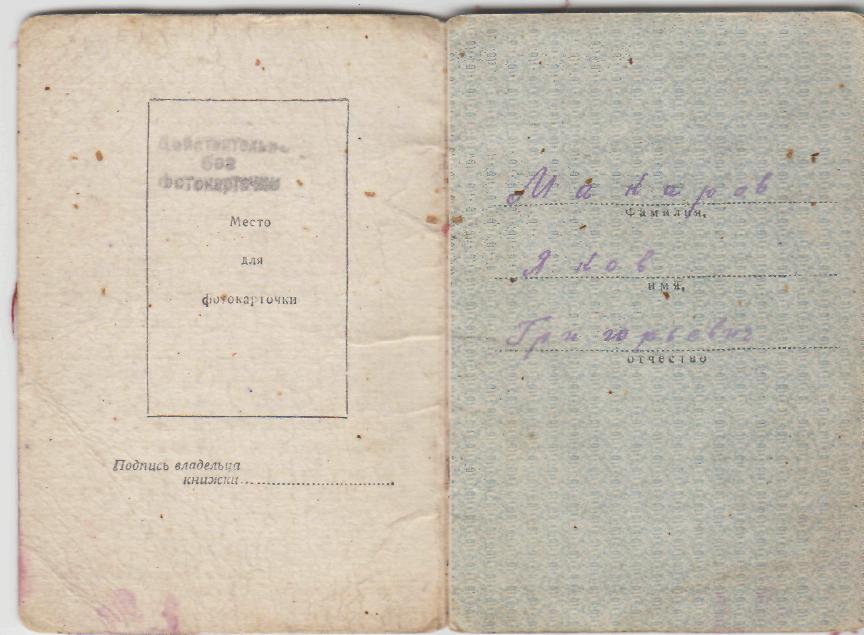 Действительно
без
фотокарточки
Место
для
фотокарточки
Подпись владельца
книжки
Макаров
фамилия,
Яков
имя,
Григорьевич
отчество